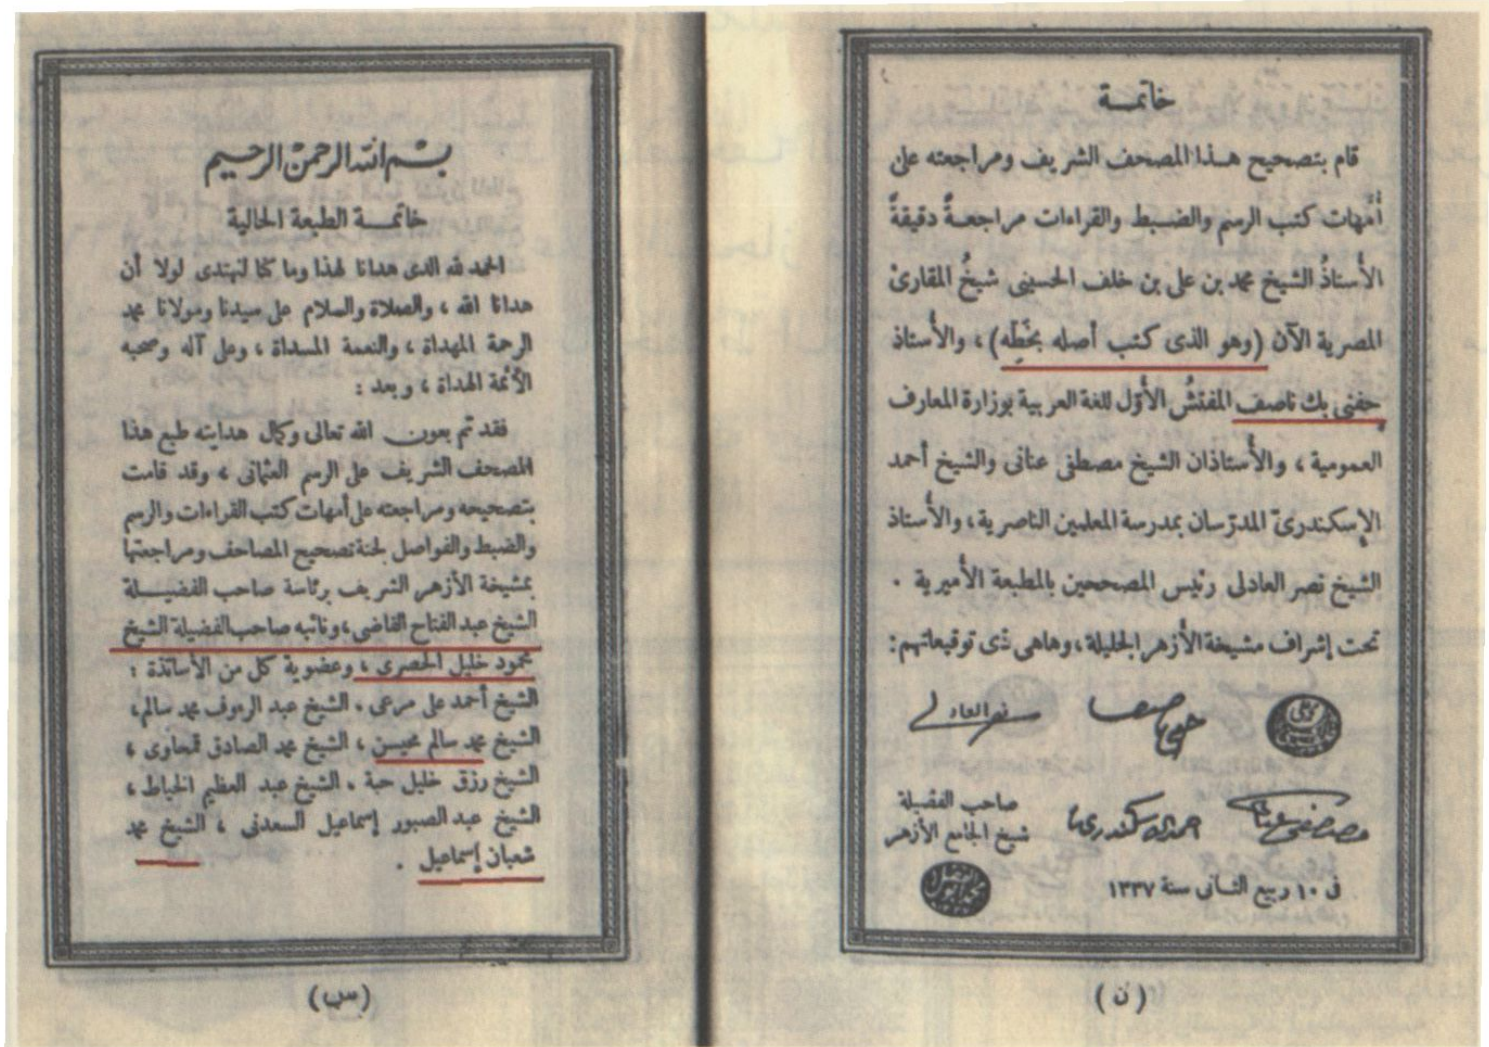 خاتمـة
قام بتصحيح هـذا المصحف الشريف ومراجعته على
أُمَّهات كتب الرسم والضبط والقراءات مراجعةً دقيقةً
الأستاذُ الشيخ محمد بن على بن خلف الحسينى شيخُ المقارئ
المصرية الآن (وهو الذى كتب أصله بخَطِّه)، والأستاذ
حفنى بك ناصف المفتشُ الأوّل للغة العربية بوزارة المعارف
العمومية، والأستاذان الشيخ مصطفى عنانى والشيخ أحمد
الإسكندرىّ المدرّسان بمدرسة المعلمين الناصرية، والأستاذ
الشيخ نصر العادلى رئيس المصححين بالمطبعة الأميرية .
تحت إشراف مشيخة الأزهر الجليلة، وهاهى ذى توقيعاتهم:
حفنى ناصف نصر العادلى
مصطفى عنانى احمد الاسكندرى
صاحب الفضيلة
شيخ الجامع الأزهر
فى ١٠ ربيع الثانى سنة ١٣٣٧
(ن)
بسم الله الرحمن الرحيم
خاتمـة الطبعة الحالية
الحمد لله الذى هدانا لهذا وما كنا لنهتدى لولا أن
هدانا الله ، والصلاة والسلام على سيدنا ومولانا محمد
الرحمة المهداة ، والنعمة المسداة ، وعلى آله وصحبه
الأئمة الهداة ، وبعد :
فقد تم بعون الله تعالى وكمال هدايته طبع هذا
المصحف الشريف على الرسم العثمانى ، وقد قامت
بتصحيحه ومراجعته على أمهات كتب القراءات والرسم
والضبط والفواصل لجنة تصحيح المصاحف ومراجعتها
بمشيخة الأزهر الشريف برئاسة صاحب الفضيـلة
الشيخ عبد الفتاح القاضى، ونائبه صاحب الفضيلة الشيخ
محمود خليل الحصرى ، وعضوية كل من الأساتذة :
الشيخ أحمد على مرعى . الشيخ عبد الرءوف محمد سالم،
الشيخ محمد سالم محيسن ، الشيخ محمد الصادق قمحاوى ،
الشيخ رزق خليل حبة . الشيخ عبد العظيم الخياط ،
الشيخ عبد الصبور إسماعيل السعدنى ، الشيخ محمد
شعبان إسماعيل .
(س)